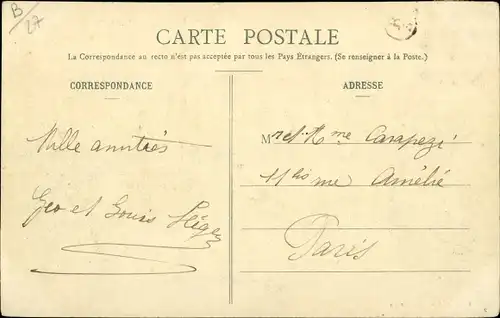 B
27
CARTE POSTALE
La Correspondance au recto n'est pas acceptée par tous les Pays Étrangers. (Se renseigner à la Poste.)
CORRESPONDANCE
Mille amitiés
Geo et Louis Léger
ADRESSE
Mr et Mme Carapezi
11 bis rue Amélie
Paris